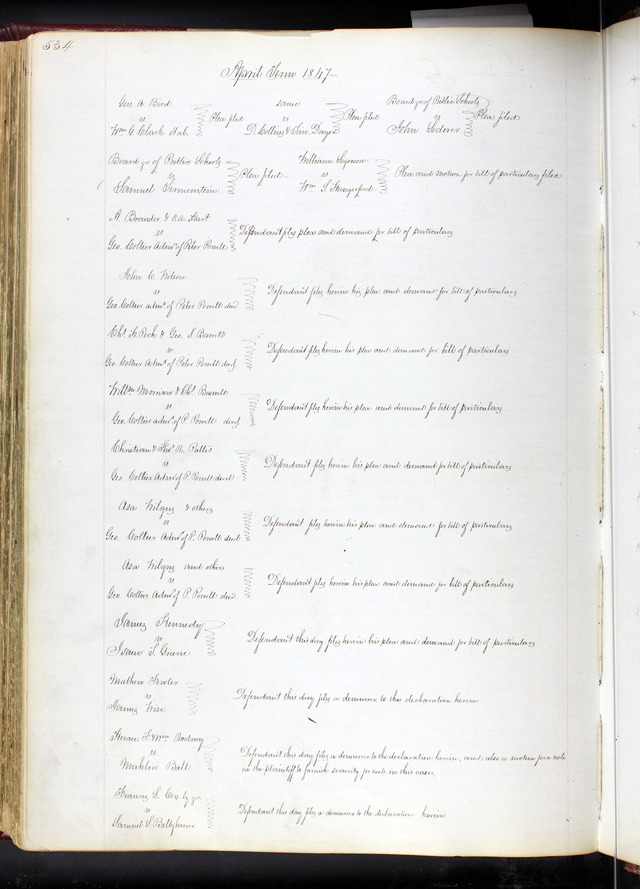 534
April Term 1847
Geo. A. Bird
vs
Wm G. Clark
Plea filed
same
vs
D. Collins &
Plea filed
Board &c of Public Schools
vs
John
Plea filed
Board &c of Public Schools
vs
Samuel
Plea filed
William
vs
Wm S. Hungerford
Plea and motion for bill of particulars filed
A. Brewster &
vs
Geo. Collier Admr of Peter Powell
Defendant files plea and demand for bill of particulars
John C. Wilson
vs
Geo. Collier admr of Peter Powell decd
Defendant files herein his plea and demand for bill of particulars
Chs. & Geo. S.
vs
Geo. Collier Admr of Peter Powell decd
Defendant files herein his plea and demand for bill of particulars
Willm Morrison & Chs.
vs
Geo. Collier admr of P. Powell decd
Defendant files herein his plea and demand for bill of particulars
Christian & Thos. R.
vs
Geo. Collier Admr of P. Powell decd
Defendant files herein his plea and demand for bill of particulars
Asa Wilgus & others
vs
Geo. Collier Admr of P. Powell decd
Defendant files herein his plea and demand for bill of particulars
Asa Wilgus and others
vs
Geo. Collier Admr of P. Powell decd
Defendant files herein his plea and demand for bill of particulars
James Kennedy
vs
Isaac T. Greene
Defendant this day files herein his plea and demand for bill of particulars
Mathew
vs
James Wise
Defendant this day files a demurrer to the declaration herein
Wm Rodney
vs
Mahlon Ball
Defendant this day files a demurrer to the declaration herein, and also a motion for a rule
on the plaintiff to furnish security for costs in this case
Francis L. Coq
vs
Samuel S.
Defendant this day files a demurrer to the declaration herein